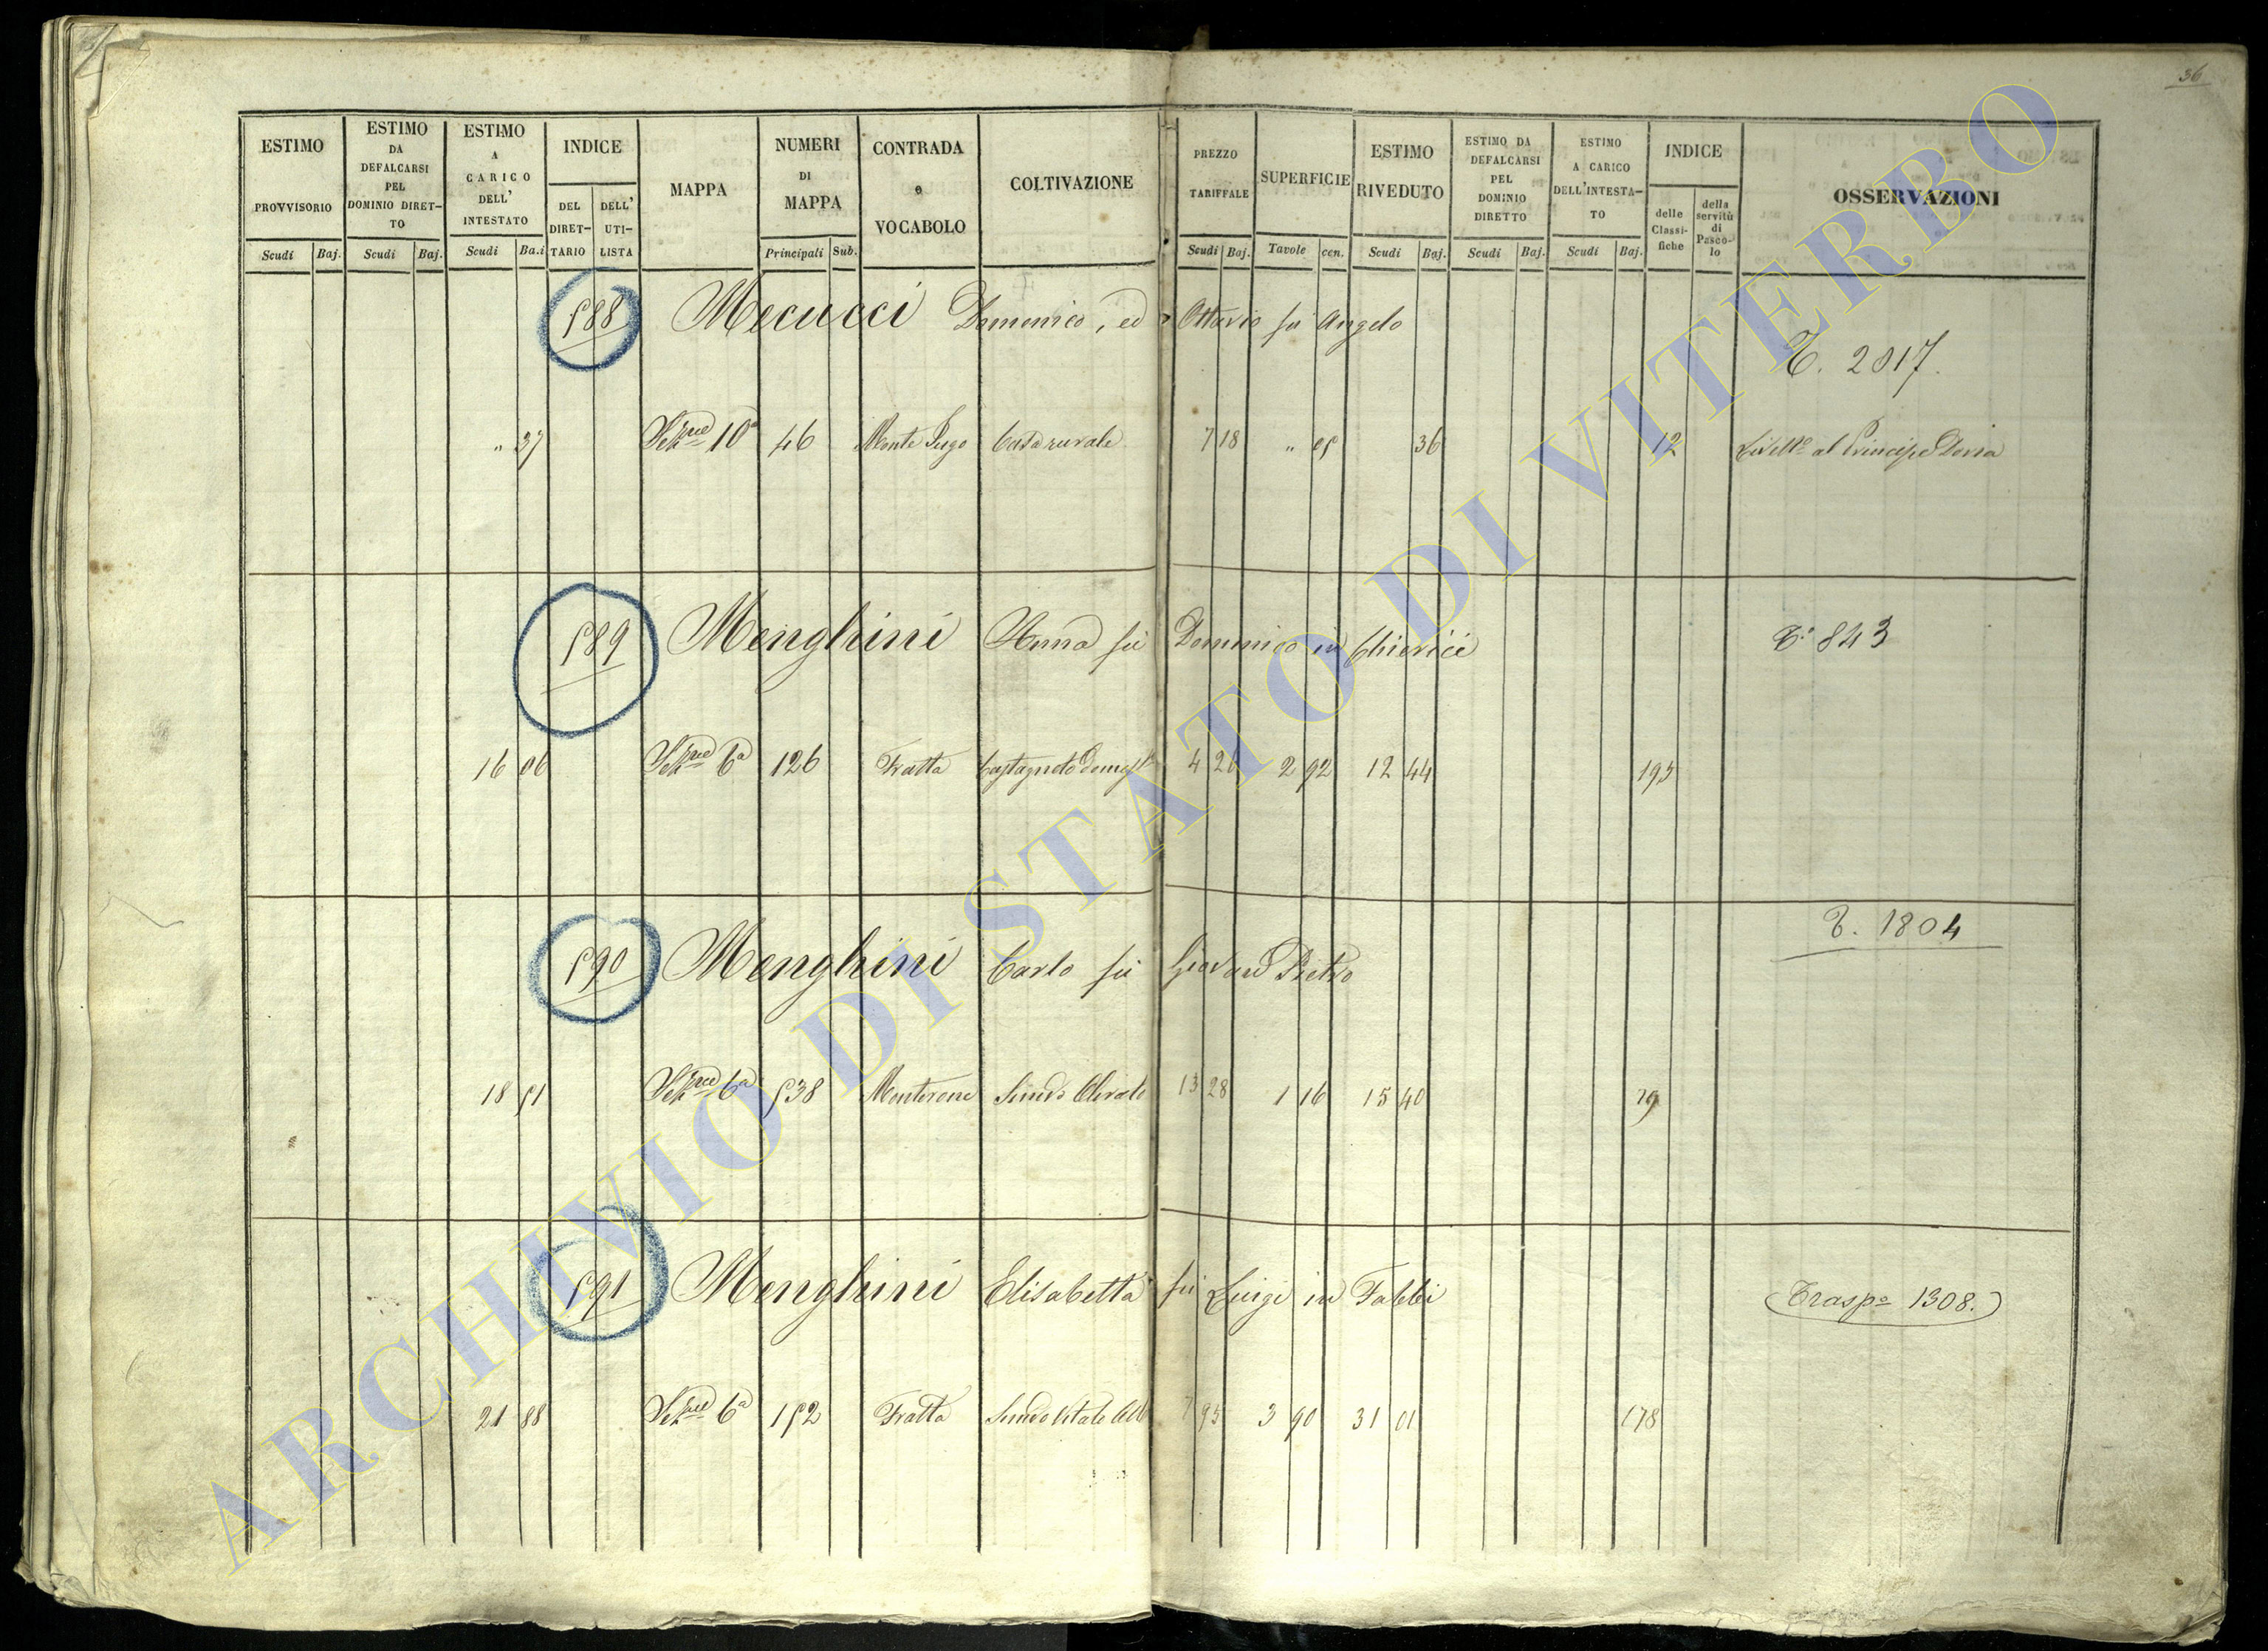 36
ESTIMO PROVVISORIO
Scudi Baj.
ESTIMO DA DEFALCARSI PEL DOMINIO DIRET-TO
Scudi Baj.
ESTIMO A CARICO DELL' INTESTATO
Scudi Ba.i
INDICE
DEL DIRET-TARIO
DELL' UTI-LISTA
MAPPA
NUMERI DI MAPPA
Principali Sub.
CONTRADA e VOCABOLO
COLTIVAZIONE
PREZZO TARIFFALE
Scudi Baj.
SUPERFICIE
Tavole cen.
ESTIMO RIVEDUTO
Scudi Baj.
ESTIMO DA DEFALCARSI PEL DOMINIO DIRETTO
Scudi Baj.
ESTIMO A CARICO DELL'INTESTA-TO
Scudi Baj.
INDICE
delle Classi-fiche
della servitù di Pasco-lo
OSSERVAZIONI
588 Mecucci Domenico, ed Ottavio fu Angelo
T. 2817.
" 37 Sez.ne 10a 46 Monte Jugo Casa rurale 7 18 " 05 36 12 Livell.o al Principe Doria
589 Menghini Anna fu Domenico in Chierici T. 843
16 06 Sez.ne 6a 126 Fratta Castagneto domest. 4 26 2 92 12 44 195
T. 1804
590 Menghini Carlo fu Giovan Pietro
18 51 Sez.ne 6a 538 Monterone Semivo Olivato 13 28 1 16 15 40 79
591 Menghini Elisabetta fu Luigi in Fabbi (Trasp.o 1308.)
21 88 Sez.ne 6a 152 Fratta 7 95 3 90 31 01 178
ARCHIVIO DI STATO DI VITERBO